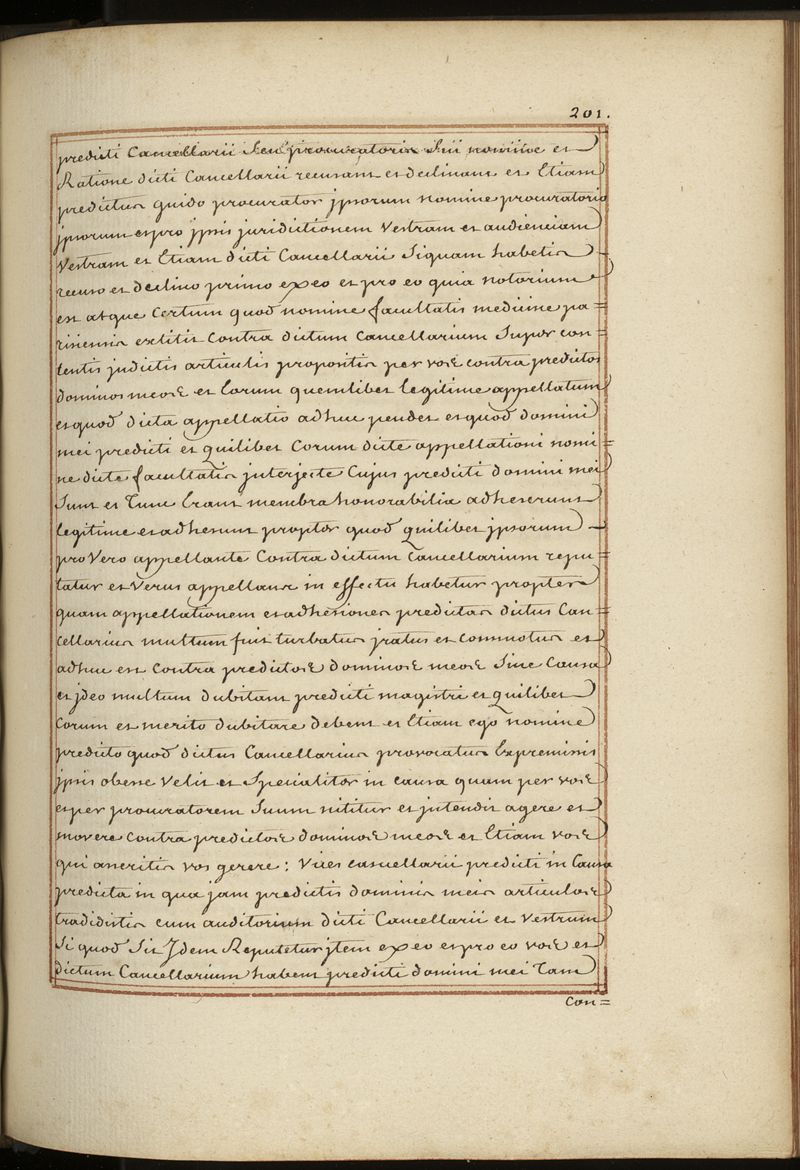 201.
predicti Cancellarii Seu procuratoris Sui nomine et
Ratione dicti Cancellarii recusant et declinant et Etiam
predictus quido procurator jpsorum nomine procuratorio
jpsorum et pro jpsis jurisdictionem Vestram et audienciam
Vestram et Etiam dicti Cancellarii Siquam habetis
recuso et declino primo ex eo et pro eo quia notorium
est atque Certum quod nomine facultatis medicine pa =
risiensis extitit Contra dictum Cancellarium Super con =
tentis jndictis articulis propositis per vos contra predictos
dominos meos et Eorum quemlibet legitime appellatum
et quod dicta appellatio adhuc pendet et quod domini
mei predicti et quilibet Eorum dicte appellationi nomi =
ne dicte facultatis jnterjecte Cujus predicti domini mei
Sunt et Tunc Erant membra honorabilia adheserunt
legitime et adherent propter quod quilibet jpsorum
pro Vero appellante Contra dictum Cancellarium repu =
tatur et Verus appellans in effectu habetur propter
quam appellationem et adhesiones predictas dictus Can =
cellarius multum fuit turbatus jratus et commotus et
adhuc est Contra predictos dominos meos Sine Causa
et jdeo multum dubitant predicti magistri et quilibet
Eorum et merito dubitare debent et Etiam ego nomine
predicto quod dictus Cancellarius provocatus Expremissis
jpsis obene Velit et Specialiter in causa quam per vos
et per procuratorem Suum nititur et jntendit agere et
movere contra predictos dominos meos et Etiam vos
qui asseritis vos gerere : Vices cancellarii predicti in Causa
predicta in qua jam predictis dominis meis articulos
tradidistis cum auditorium dicti Cancellarii et Vestrum
Si quod Sit Jdem Reputetur jtem ex eo et pro eo vos et
dictum Cancellarium habent predicti domini mei Tam
Con =